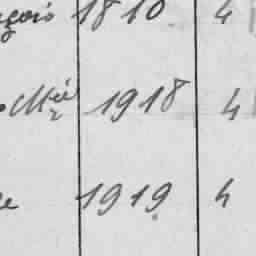 çois 1810 4
Mie 1918 4
e 1919 4